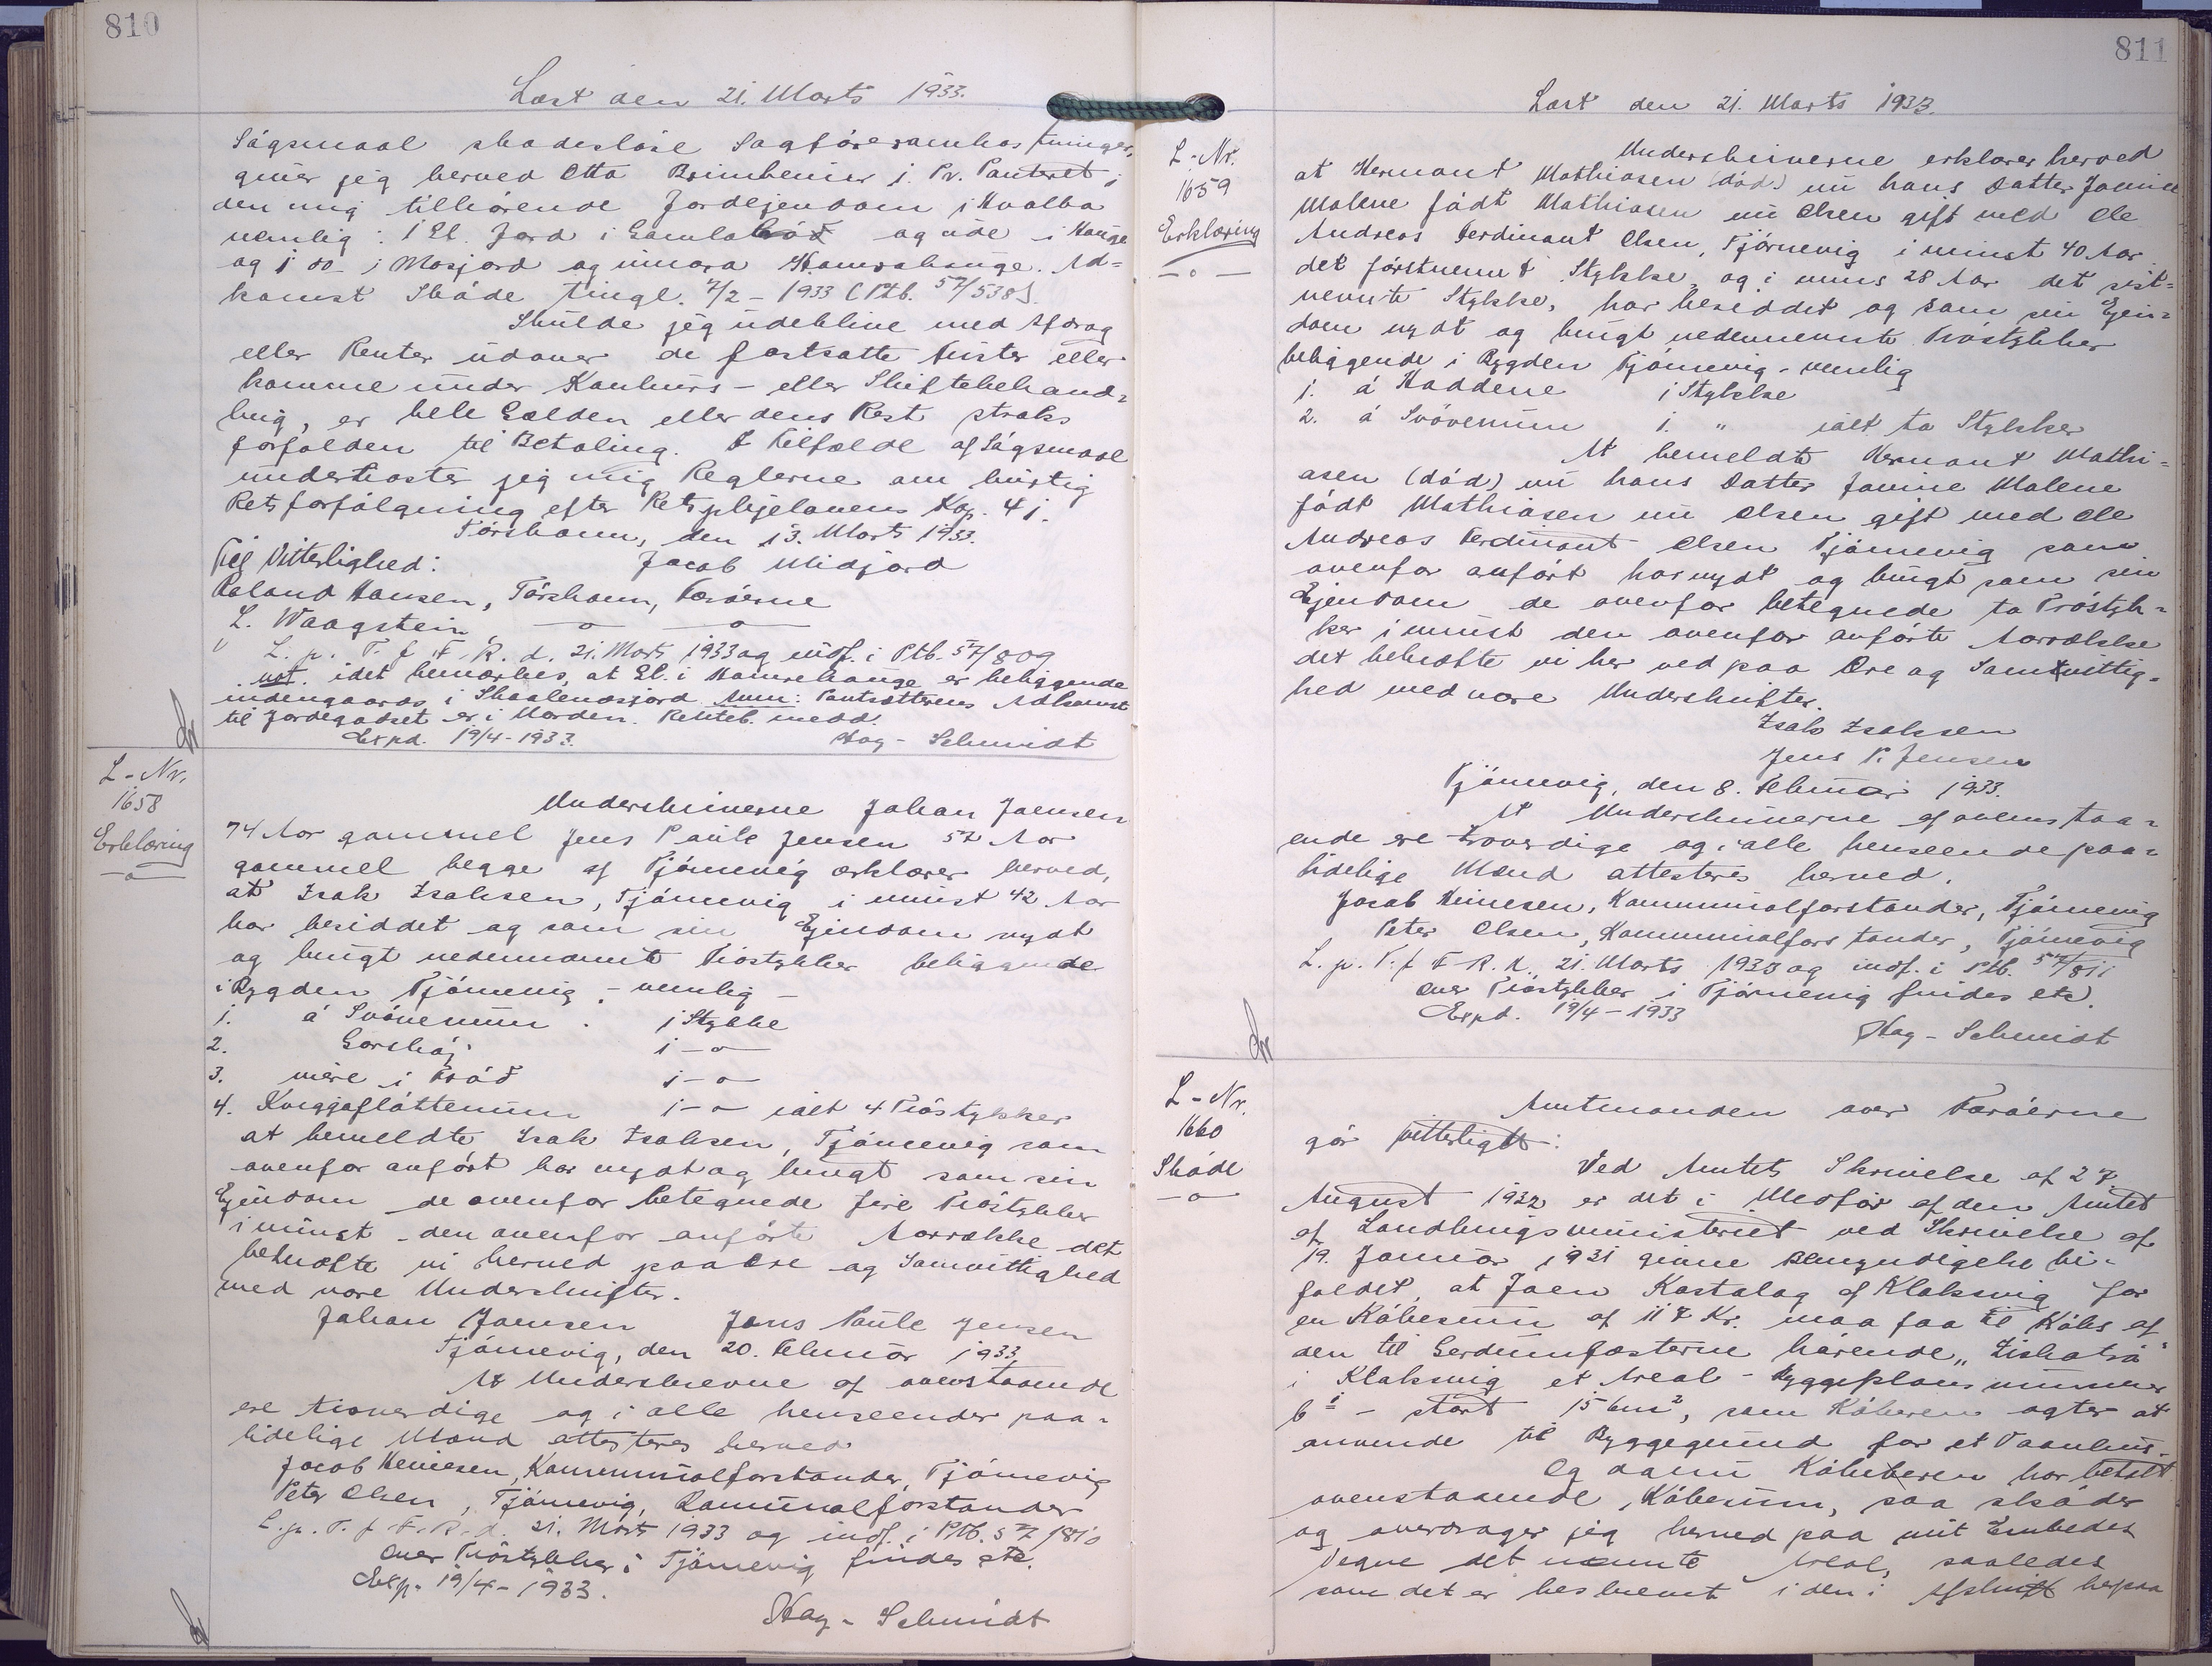 810
Læst den 21. Marts 1933.
Sägsmaal skadesløse Sagføreromkostninger,
giver jeg herved Otto Brimheim 1. Pr. Panteret i
den mig tilhørende Jordejendom i Hvalba
nemlig: 1 Gl. Jord i Gamla ude i Hauge
og 1 do i Mosjord og Hamrahauge. Ad=
komst Skøde tingl. 7/2-1933 (Ptb. 57/538).
Skulde jeg udeblive med Afdrag
eller Renter udover de fastsatte Frister eller
komme under Konkurs- eller Skiftebehand=
ling, er hele Gælden eller dens Rest straks
forfalden til Betaling. I Tilfælde af Sägsmaal
underkaster jeg mig Reglerne om hurtig
Retsforfølgning efter Retsplejelovens Kap. 41.
Tórshavn, den 13. Marts 1933.
Til Vitterlighed: Jacob Midjord
Roland Hansen, Tórshavn, Færøerne
L. Waagstein, —o— —o—
L. p. T. f. F. R. d. 21. Marts 1933 og indf. i Ptb. 57/809
not. idet bemærkes, at Gl. i Hamrehauge er beliggende
indengaards i Skaalenæsjord Anm: Pantsætterens Adkomst
til Jordegodset er i Orden. Retteb. medd.
Expd. 19/4-1933. Hag-Schmidt
L-Nr.
1658
Erklæring
—o—
Underskriverne Johan Joensen
74 Aar gammel Jens Paule Jensen 57 Aar
gammel begge af Tjørnevig erklærer herved,
at Isak Isaksen, Tjørnevig i minst 42 Aar
har besiddet og som sin Ejendom nydt
og brugt nedennævnte Trøstykker beliggende
i Bygden Tjørnevig - nemlig -
1. á Svøvenum . 1 Stykke
2. Gorshøj 1-o-
3. nière i Trød 1-o-
4. Kviggjafløttenum 1-o- ialt 4 Trøstykker
at bemeldte Isak Isaksen, Tjørnevig som
ovenfor anført har nydt og brugt som sin
Ejendom de ovenfor betegnede fire Trøstykker
i minst den ovenfor anførte Aarrække det
bekræfte vi herved paa Ære og Samvittighed
med vore Underskrifter.
Johan Joensen Jens Paule Jensen
Tjørnevig, den 20. Februar 1933.
At Underskrevne af ovenstaaende
ere troverdige og i alle henseender paa=
lidelige Mænd attesteres herved
Jacob Heinesen, Kommunalforstander, Tjørnevig
Peter Olsen, Tjørnevig, Komunalforstander
L. p. T. f. F. R. d. 21. Marts 1933 og indf. i Ptb. 57/810
Over Trøstykker i Tjørnevig findes etc.
Exp. 19/4-1933.
Hag-Schmidt
811
Læst den 21. Marts 1933.
L-Nr.
1659
Erklæring
—o—
Underskriverne erklærer herved
at Hermant Mathiasen (død.) nu hans Datter Jovine
Malene født Mathiasen nu Olsen gift med Ole
Andreas Ferdinant Olsen, Tjørnevig i minst 40 Aar
det førstnevnt Stykke, og i mins 28 Aar det sist=
nevnte Stykke, har besiddet og som sin Ejen=
dom nydt og brugt nedennevnte Trøstykker
beliggende i Bygden Tjørnevig - nemlig
1. á Haddene 1 Stykke
2. á Svøvenum 1. " ialt to Stykker
At bemeldte Hermant Mathi=
asen (død) nu hans Datter Jovine Malene
født Mathiasen nu Olsen gift med Ole
Andreas Ferdinant Olsen Tjørnevig som
ovenfor anført har nydt og brugt som sin
Ejendom de ovenfor betegnede to Trøstyk=
ker i minst den ovenfor anførte Aarrække
det bekræfte vi her ved paa Ære og Samvittig=
hed med vore Underskrifter.
Isak Isaksen
Jens P. Jensen
Tjørnevig, den 8. Februar 1933.
At Underskriverne af ovenstaa=
ende ere troverdige og i alle henseende paa=
lidelige Mænd attesteres herved.
Jacob Heinesen, Kommunalforstander, Tjørnevig
Peter Olsen, Kommunalforstander, Tjørnevig
L. p. T. f. F. R. d. 21. Marts 1933 og indf. i Ptb. 57/811
Over Trøstykker i Tjørnevig findes etc.
Expd. 19/4-1933
Hag-Schmidt
L-Nr.
1660
Skøde
—o—
Amtmanden over Færøerne
gør vitterligt:
Ved Amtets Skrivelse af 27.
August 1932 er det i Medfør af den Amtet
af Landbrugsministeriet ved Skrivelse af
19. Januar 1931 givne Bemyndigelse bi=
faldet, at Joen Kastalag af Klaksvig for
en Købesum af 117 Kr. maa faa til Købs af
den til Gerdumfæsterne hørende "Ziskatrø"
i Klaksvig et Areal - Byggeplans nummer
6 i - stort 156m², som Køberen agter at
anvende til Byggegrund for et Vaanhus.
Og da nu Køberen har betalt
ovenstaaende Købesum, saa skøder
og overdrager jeg herved paa mit Embedes
Vegne det nævnte Areal, saaledes
som det er beskrevet i den i Afskrift herpaa